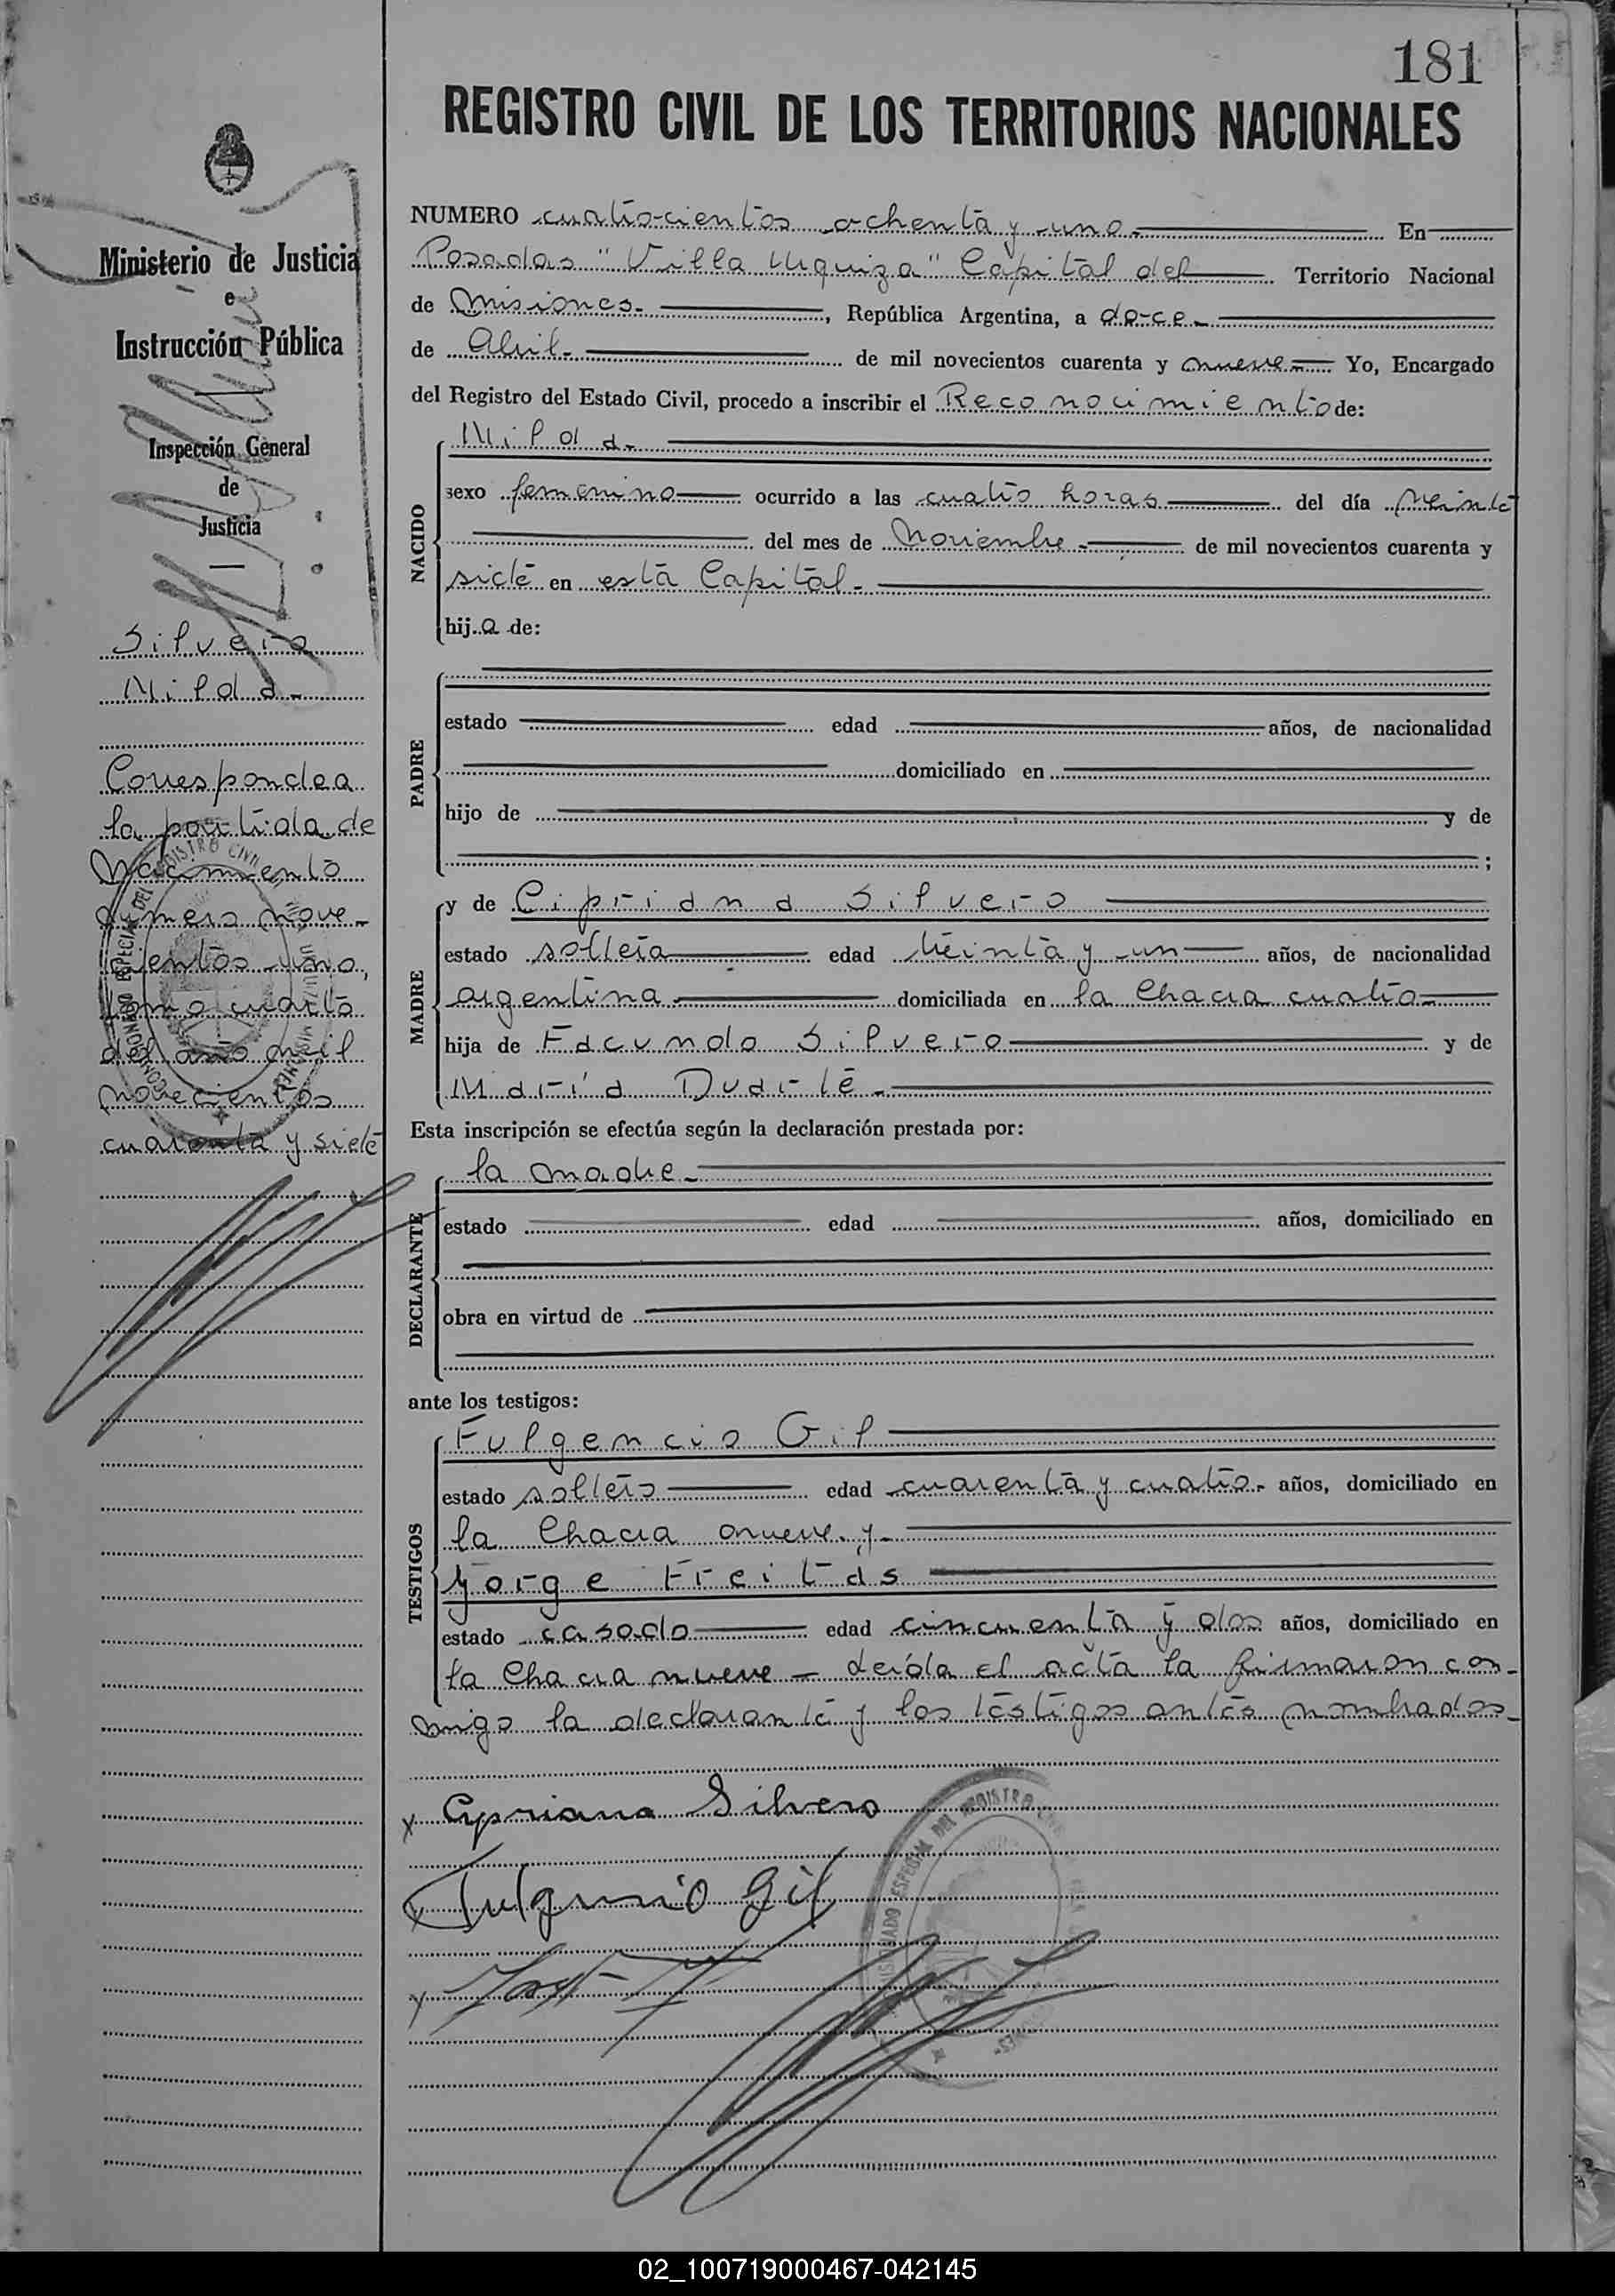 181
REGISTRO CIVIL DE LOS TERRITORIOS NACIONALES
Ministerio de Justicia
e
Instrucción Pública
Inspección General
de
Justicia
Silvero
Milda.
Corresponde a
la partida de
Nacimiento
número nove-
cientos uno,
tomo cuarto
del año mil
novecientos
cuarenta y siete
COMISIONADO ESPECIAL DEL REGISTRO CIVIL
NUMERO cuatrocientos ochenta y uno. En
Posadas "Villa Urquiza" Capital del Territorio Nacional
de Misiones. , República Argentina, a doce
de Abril. de mil novecientos cuarenta y nueve Yo, Encargado
del Registro del Estado Civil, procedo a inscribir el Reconocimiento de:
NACIDO
Milda.
sexo femenino ocurrido a las cuatro horas del día veinte
del mes de Noviembre de mil novecientos cuarenta y
siete en esta Capital.
hija de:
PADRE
estado edad años, de nacionalidad
domiciliado en
hijo de y de
;
MADRE
y de Cipriana Silvero
estado soltera edad treinta y un años, de nacionalidad
argentina domiciliada en la Chacra cuatro
hija de Facundo Silvero y de
María Duarte.
Esta inscripción se efectúa según la declaración prestada por:
DECLARANTE
la madre.
estado edad años, domiciliado en
obra en virtud de
ante los testigos:
TESTIGOS
Fulgencio Gil
estado soltero edad cuarenta y cuatro. años, domiciliado en
la Chacra nueve y
Jorge Freitas
estado casado edad cincuenta y dos años, domiciliado en
la Chacra nueve - Leída el acta la firmaron con-
migo la declarante y los testigos antes nombrados
x Cypriana Silvero
Fulgencio Gil
COMISIONADO ESPECIAL DEL REGISTRO CIVIL
02_100719000467-042145